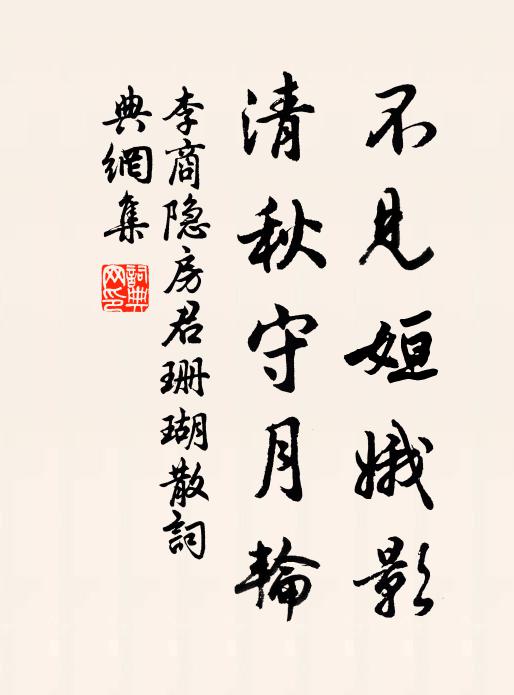 不見姮娥影
清秋守月輪
李商隐房君珊瑚散詞
典網集
詞典
网印